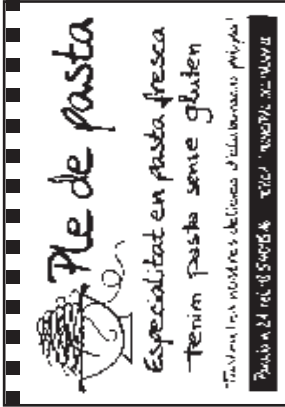 Ple de pasta
Especialitat en pasta fresca
Tenim pasta sense gluten
"Tasteu les nostres delícies d'elaboració pròpia"